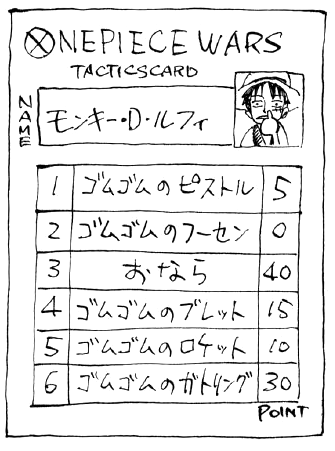 ONEPIECE WARS
TACTICSCARD
NAME
モンキー・D・ルフィ
1 ゴムゴムのピストル 5
2 ゴムゴムのフーセン 0
3 おなら 40
4 ゴムゴムのブレット 15
5 ゴムゴムのロケット 10
6 ゴムゴムのガトリング 30
POINT